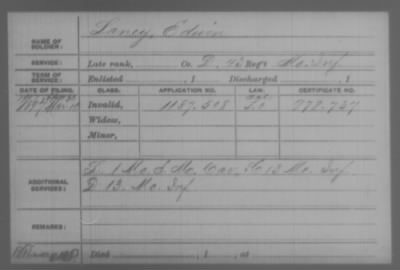 NAME OF SOLDIER: Laney, Edwin
SERVICE: Late rank, Co. D, 43 Reg't Mo. Inf
TERM OF SERVICE: Enlisted , 1 Discharged , 1
DATE OF FILING. CLASS. APPLICATION NO. LAW. CERTIFICATE NO.
Invalid, 1187.508 772.737
Widow,
Minor,
ADDITIONAL SERVICES: L. 1 Mo. S. M. Cav., 13 Mo. Inf
D. 13. Mo. Inf
REMARKS:
Died , 1 , at